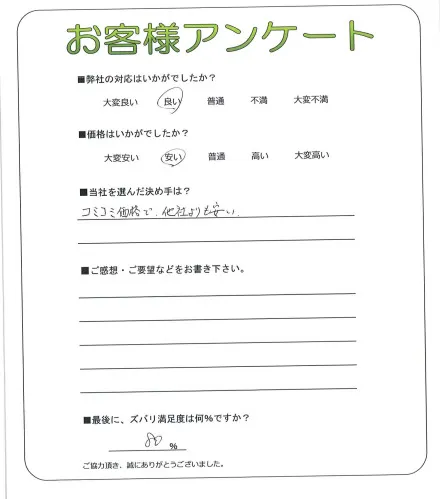 お客様アンケート
■弊社の対応はいかがでしたか?
大変良い 良い 普通 不満 大変不満
■価格はいかがでしたか?
大変安い 安い 普通 高い 大変高い
■当社を選んだ決め手は?
コミコミ価格で、他社よりも安い。
■ご感想・ご要望などをお書き下さい。
■最後に、ズバリ満足度は何%ですか?
80 %
ご協力頂き、誠にありがとうございました。